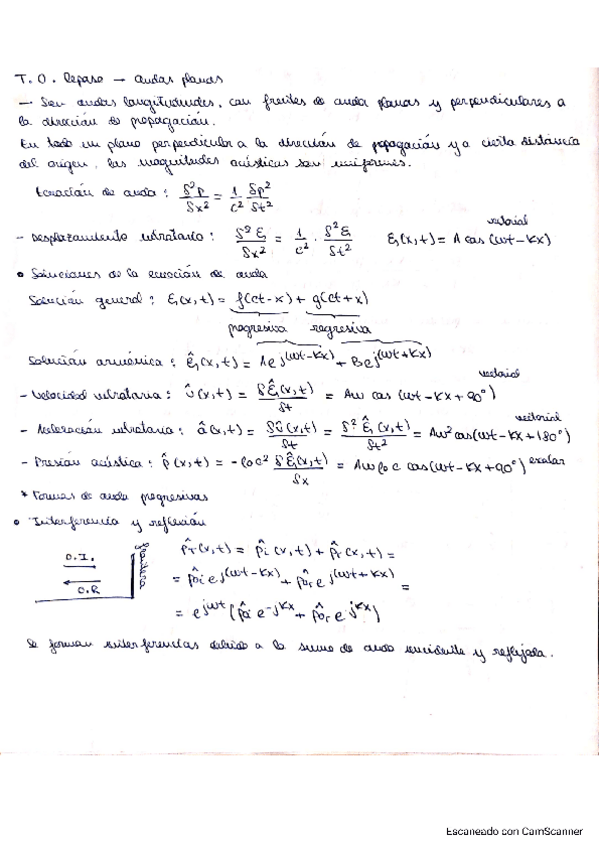 T.0. Repaso → ondas planas
— Son ondas longitudinales, con frentes de onda planos y perpendiculares a
la dirección de propagación.
En todo un plano perpendicular a la dirección de propagación y a cierta distancia
del origen, las magnitudes acústicas son uniformes.
Ecuación de onda : δ²p/δx² = 1/c² δp²/δt²
- Desplazamiento vibratorio : δ²ξ/δx² = 1/c² · δ²ξ/δt² ξ(x,t) = A cos(ωt-kx) vectorial
• Soluciones de la ecuación de onda
Solución general : ξ(x,t) = f(ct-x) + g(ct+x)
progresiva regresiva
Solución armónica : ξ̂(x,t) = A e^j(ωt-kx) + B e^j(ωt+kx)
- Velocidad vibratoria : û(x,t) = δξ̂(x,t)/δt = Aω cos (ωt-kx+90°) vectorial
- Aceleración vibratoria : â(x,t) = δû(x,t)/δt = δ²ξ̂(x,t)/δt² = Aω² cos(ωt-kx+180°) vectorial
- Presión acústica : p̂(x,t) = -ρ₀c² δξ̂(x,t)/δx = Aωρ₀c cos(ωt-kx+90°) escalar
* Formas de onda progresivas
• Interferencia y reflexión
O.I.
O.R
frontera
p̂T(x,t) = p̂i(x,t) + p̂r(x,t) =
= p̂oi e^j(ωt-kx) + p̂or e^j(ωt+kx) =
= e^jωt (p̂oi e^-jkx + p̂or e^jkx)
Se forman interferencias debido a la suma de onda incidente y reflejada.
Escaneado con CamScanner